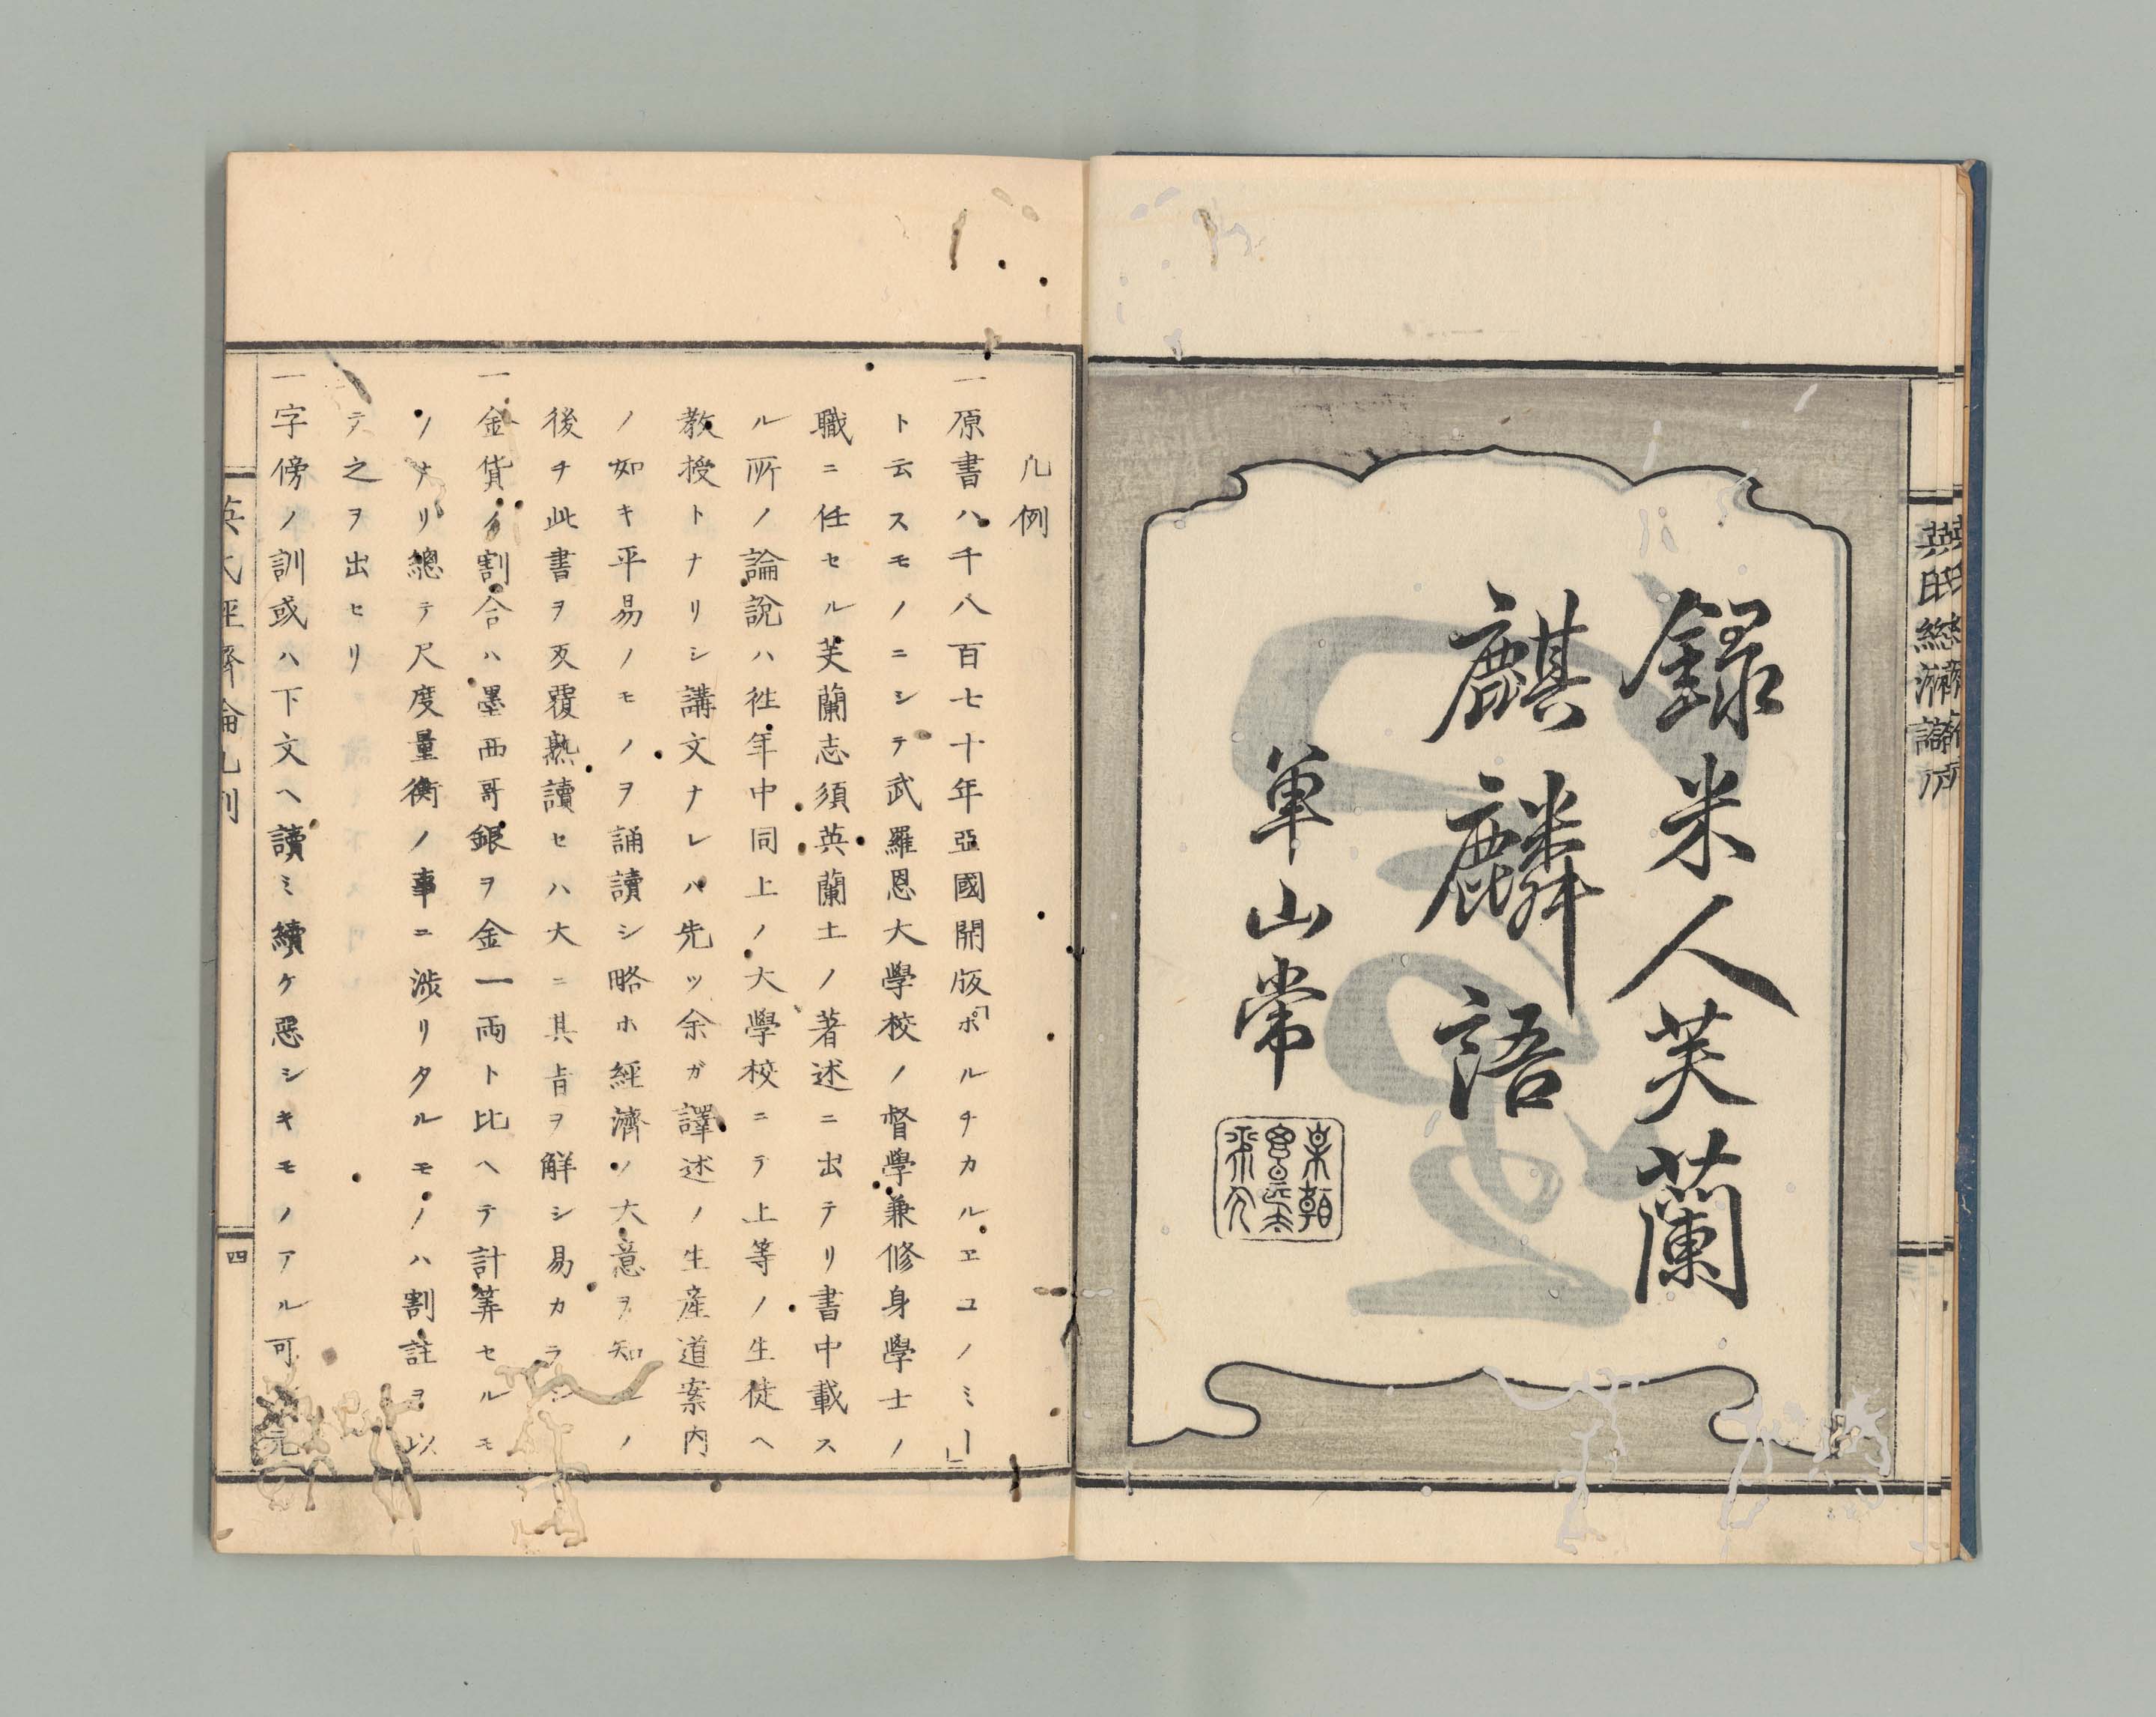 錄米人芙蘭
麒麟語
単山常
英氏經濟論序
凡例
一原書ハ千八百七十年亞國開版「ポルチカルエコノミー」
ト云スモノニシテ武羅恩大學校ノ督學兼修身學士ノ
職ニ任セル芙蘭志須英蘭土ノ著述ニ出テリ書中載ス
ル所ノ論說ハ徃年中同上ノ大學校ニテ上等ノ生徒ヘ
教授トナリシ講文ナレハ先ツ余ガ譯述ノ生産道案内
ノ如キ平易ノモノヲ誦讀シ略ホ經濟ノ大意ヲ知ノ
後チ此書ヲ反覆熟讀セハ大ニ其旨ヲ解シ易カラン
一金貨ノ割合ハ墨西哥銀ヲ金一両ト比ヘテ計筭セルモ
ノナリ總テ尺度量衡ノ事ニ涉リタルモノハ割註ヲ以
テ之ヲ出セリ
一字傍ノ訓或ハ下文ヘ讀ミ續ケ惡シキモノアル可
英氏經濟論凡例
四